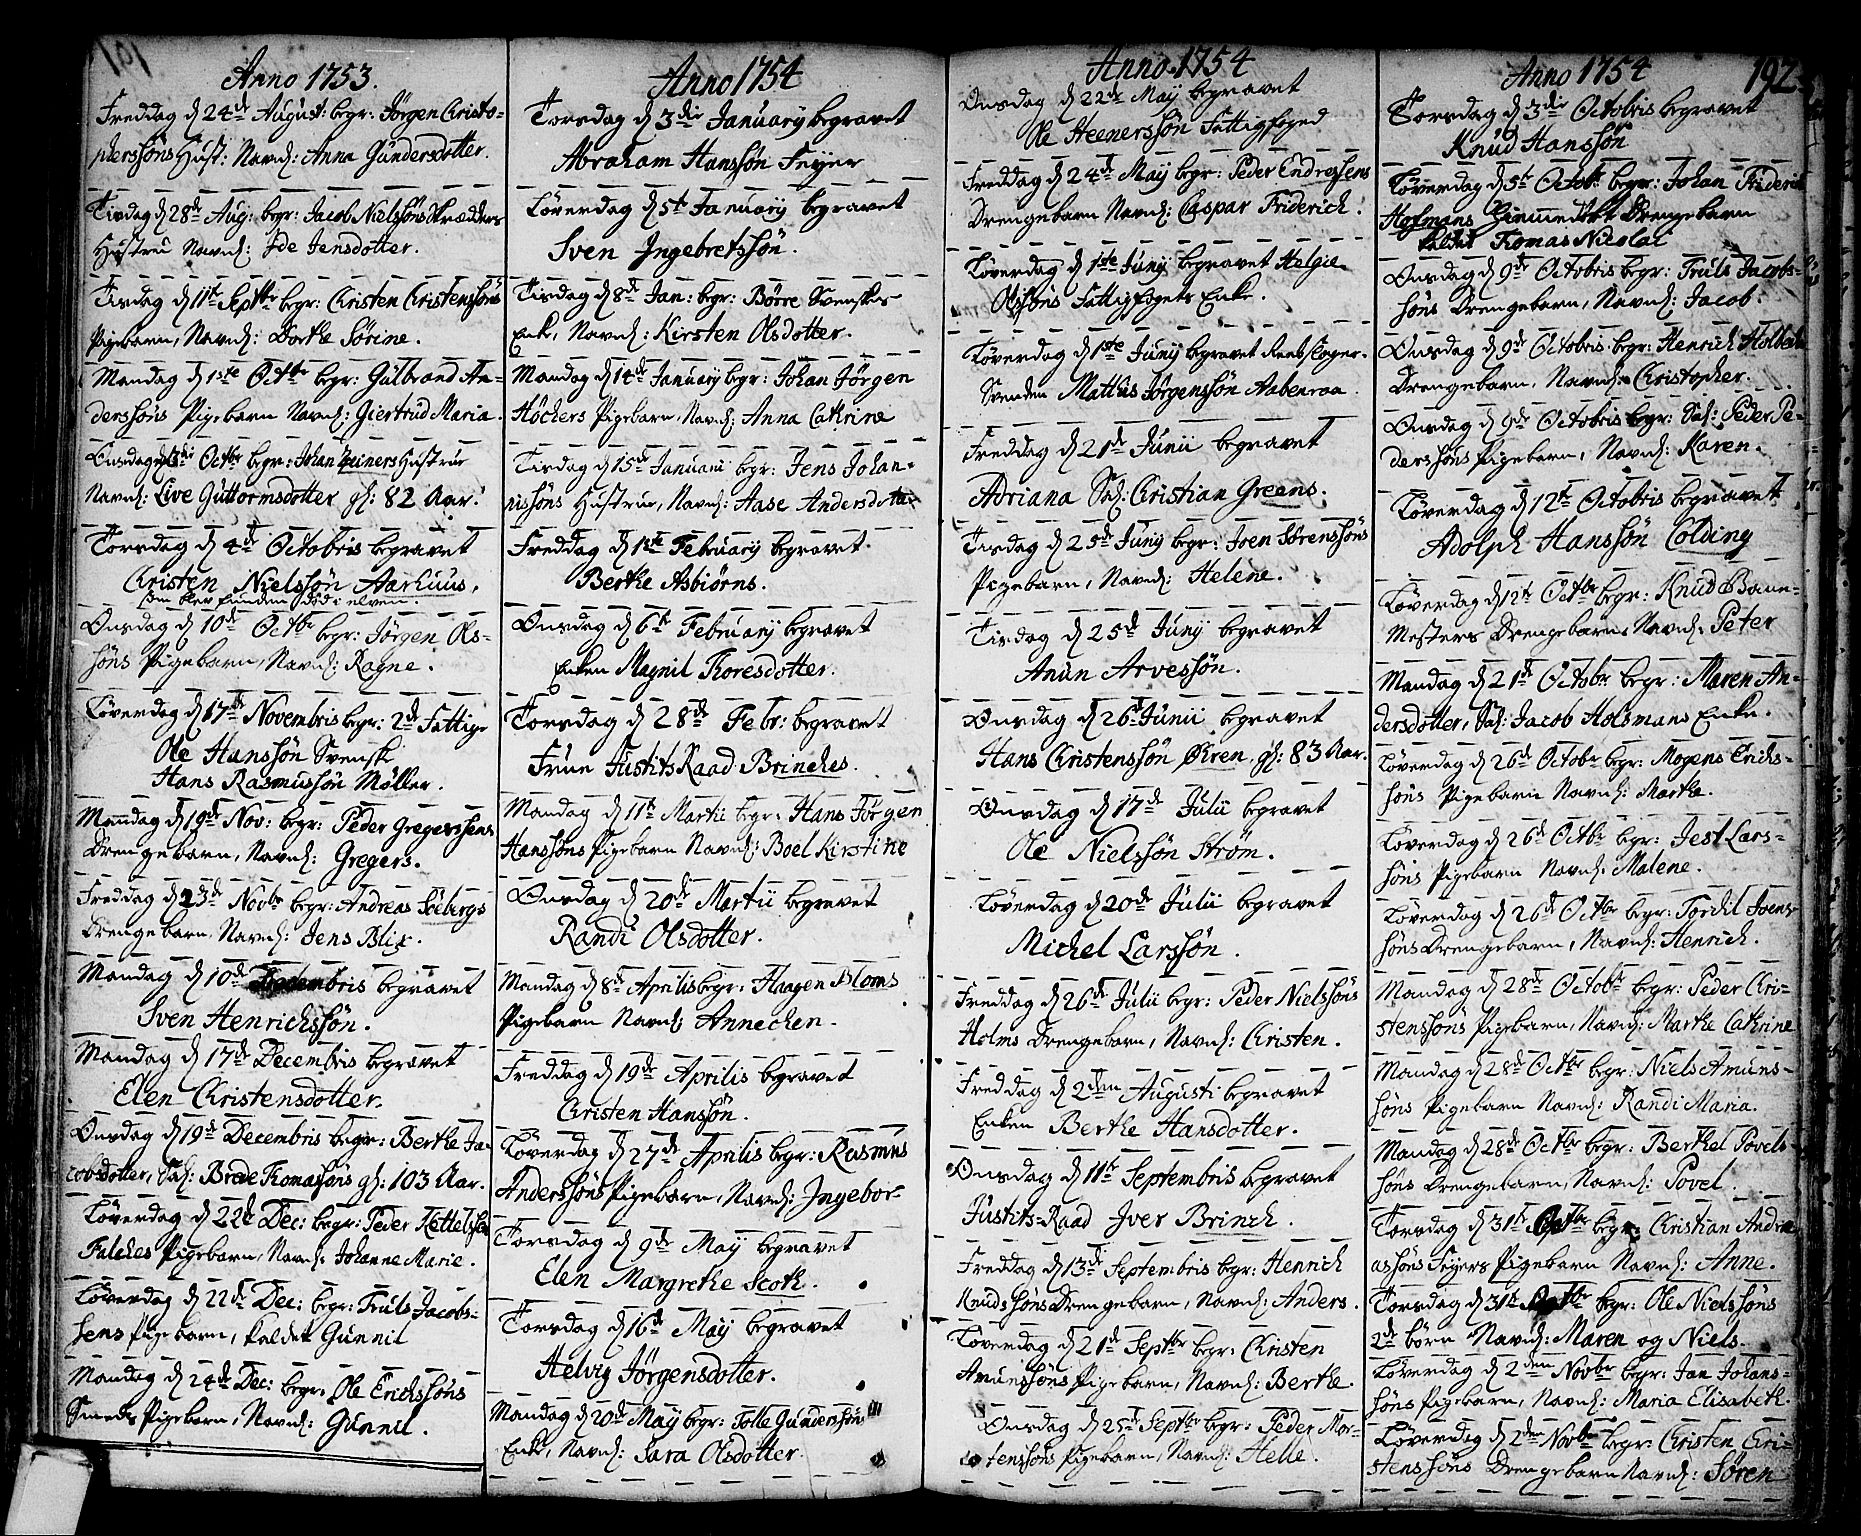 191
Anno 1753.
Freddag d. 24de August: begr: Jörgen Christo-
phersöns Hust: Navnl: Anna Gundersdotter.
Tirsdag d. 28de Aug: begr: Jacob Nielsöns Skrædders
Hustru Navnl: Ide Jensdotter.
Tisdag d. 11te Septbr begr: Christen Christensöns
Pigebarn, Navnl: Dorthe Sörine.
Mandag d. 1ste Octbr begr: Gulbrand An-
dersöns Pigebarn Navnl: Giertrud Maria.
Onsdag d. 3die Octbr begr: Johan Hustrue
Navnl: Live Guttormsdotter gl: 82 Aar.
Torsdag d. 4de Octobris begravet
Christen Nielssön Aarhuus,
som blev funden död i elven.
Onsdag d. 10de Octbr begr: Jörgen Ols-
söns Pigebarn, Navnl: Ragne.
Löverdag d. 17de Novembris begr: 2de Fattige
Ole Hanssön Svensk
Hans Rasmussön Möller.
Mandag d. 19de Nov: begr: Peder Gregerssens
Drengebarn, Navnl: Gregers.
Freddag d. 23de Novbr begr: Andreas Söebergs
Drengebarn, Navnl: Jens Blix.
Mandag d. 10de begravet
Sven Henrichssön.
Mandag d. 17de Decembris begravet
Elen Christensdotter.
Onsdag d. 19de Decembris begr: Berthe Ja-
cobsdotter, Sal: Brede Thomassöns gl: 103 Aar.
Löverdag d. 22de Dec: begr: Peder Kettelsen
Falches Pigebarn, Navnl: Johanne Marie.
Löverdag d. 22de Dec: begr: Truls Jacob-
sens Pigebarn, kaldet Gunnil
Mandag d. 24de Dec: begr: Ole Erichssöns
Smeds Pigebarn, Navnl: Gunnil.
Anno 1754
Torsdag d. 3die January begravet
Abraham Hanssön Feyer
Löverdag d. 5te January begravet
Sven Ingebretssön.
Tisdag d. 8de Jan: begr: Börre Svenskes
Enke, Navnl: Kirsten Olsdotter.
Mandag d. 14de January begr: Johan Jörgen
Höckers Pigebarn, Navnl: Anna Cathrina
Tirsdag d. 15de Januarii begr: Jens Johan-
nissöns Hustrue, Navnl: Aase Andersdotter
Freddag d. 1ste February begravet
Berthe Asbiörns.
Onsdag d. 6te February begravet
Enken Magnil Thoresdotter.
Torsdag d. 28de Febr: begravet
Frue Justits Raad Brinches.
Mandag d. 11te Martii begr: Hans Jörgen
Hanssöns Pigebarn Navnl: Boel Kirstine
Onsdag d. 20de Martii begravet
Randi Olsdotter.
Mandag d. 8de Aprilis begr: Haagen Bloms
Pigebarn Navnl: Annechen.
Freddag d. 19de Aprilis begravet
Christen Hanssön.
Löverdag d. 27de Aprilis begr: Rasmus
Anderssöns Pigebarn, Navnl: Ingebor-
Torsdag d. 9de May begravet
Elen Margrethe Scoth.
Torsdag d. 16de May begravet
Helvig Jörgensdotter.
Mandag d. 20de May begr: Tolle Gunderssöns
Enke, Navnl: Sara Olsdotter.
Anno 1754
Onsdag d. 22de May begravet
Ole Steenerssön Fattigfoged
Freddag d. 24de May begr: Peder Endressens
Drengebarn Navnl: Caspar Friderich.
Löverdag d. 1ste Juny begravet Helgie
Fattigfogets Enke.
Löverdag d. 1ste Juny begravet
Svenden Matthis Jörgenssön Aabenraa.
Freddag d. 21de Junii begravet
Adriana Sal: Christian Greens.
Tisdag d. 25de Juny begr: Joen Sörenssöns
Pigebarn, Navnl: Helene.
Tisdag d. 25de Juny begravet
Anun Arvessön.
Onsdag d. 26de Junii begravet
Hans Christenssön Ören, gl: 83 Aar.
Onsdag d. 17de Julii begravet
Ole Nielssön Ström.
Löverdag d. 20de Julii begravet
Michel Larssön.
Freddag d. 26de Julii begr: Peder Nielssöns
Holms Drengebarn, Navnl: Christen.
Freddag d. 2den Augusti begravet
Enken Berthe Hansdotter.
Onsdag d. 11te Septembris begravet
Justits-Raad Iver Brinch.
Freddag d. 13de Septembris begr: Henrich
Knudssöns Drengebarn, Navnl: Anders.
Löverdag d. 21de Septbr begr: Christen
Amunssöns Pigebarn, Navnl: Berthe.
Onsdag d. 25de Septbr begr: Peder Mor-
tenssöns Pigebarn, Navnl: Helle.
Anno 1754
192
Torsdag d. 3die Octobris begravet
Knud Hanssön
Löverdag d. 5te Octobr begr: Johan Friderich
Hofmans Hiemmedöbt Drengebarn
kaldet Thomas Nicolai
Onsdag d. 9de Octobris begr: Truls Jacobs-
söns Drengebarn, Navnl: Jacob.
Onsdag d. 9de Octobris begr: Henrich
Drengebarn, Navnl: Christopher.
Onsdag d. 9de Octobris begr: Sal: Peder Pe-
derssöns Pigebarn, Navnl: Karen.
Löverdag d. 12te Octobris begravet
Adolph Hanssön Colding
Löverdag d. 12te Octbr begr: Knud Bane-
Mesters Drengebarn Navnl: Peter
Mandag d. 21de Octobr begr: Maren An-
dersdotter, Sal: Jacob Holsmans Enke.
Löverdag d. 26de Octobr begr: Mogens Erichs-
söns Pigebarn Navnl: Marthe.
Löverdag d. 26de Octbr begr: Jest Lars-
söns Pigebarn Navnl: Malene.
Löverdag d. 26de Octbr begr: Tordil Joens-
söns Drengebarn, Navnl: Henrich.
Mandag d. 28de Octobr begr: Peder Chri-
stenssöns Pigebarn, Navnl: Marthe Cathrine
Mandag d. 28de Octbr begr: Niels Amuns-
söns Pigebarn Navnl: Randi Maria.
Mandag d. 28de Octbr begr: Berthel Povels-
söns Drengebarn, Navnl: Povel.
Torsdag d. 31te Octbr begr: Christian Andre-
assöns Feyers Pigebarn Navnl: Anne.
Torsdag d. 31te Octbr begr: Ole Nielssöns
2de börn Navnl: Maren og Niels.
Löverdag d. 2den Novbr begr: Jan Johans-
söns Pigebarn, Navnl: Maria Elisabeth.
Löverdag d. 2den Novbr begr: Christen Chri-
stenssöns Drengebarn Navnl: Sören